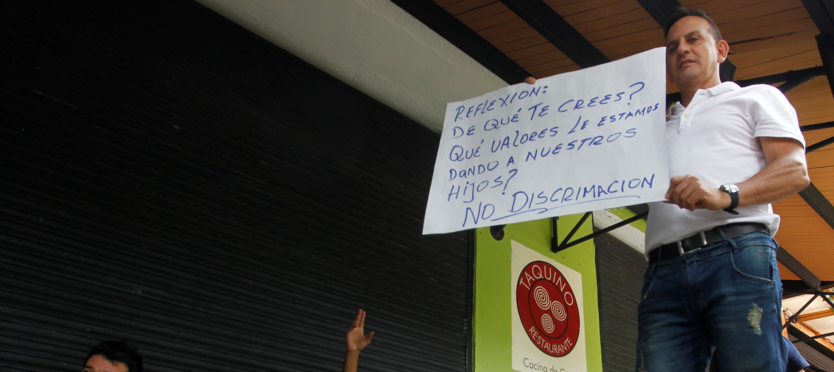 REFLEXION:
DE QUÉ TE CREES?
QUÉ VALORES LE ESTAMOS
DANDO A NUESTROS
HIJOS?
NO DISCRIMACION
TAQUINO
RESTAURANTE
Cocina de